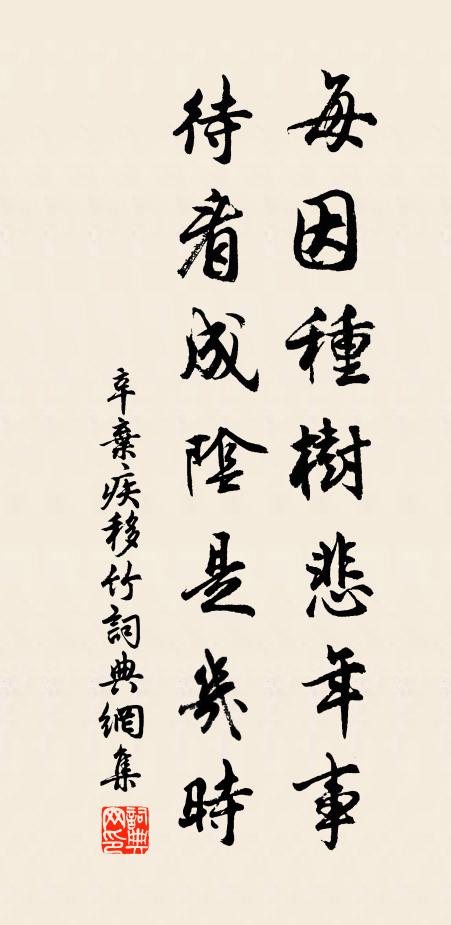 每因種樹悲年事
待看成陰是幾時
辛棄疾移竹詞典網集
詞典網印